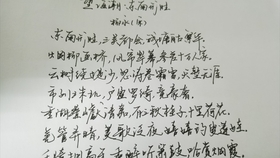 望海潮·东南形胜
柳永(宋)
东南形胜,三吴都会,钱塘自古繁华
烟柳画桥,风帘翠幕,参差十万人家
云树绕堤沙,怒涛卷霜雪,天堑无涯
市列珠玑,户盈罗绮,竞豪奢
重湖叠巘清嘉,有三秋桂子,十里荷花
羌管弄晴,菱歌泛夜,嬉嬉钓叟莲娃
千骑拥高牙,乘醉听箫鼓,吟赏烟霞